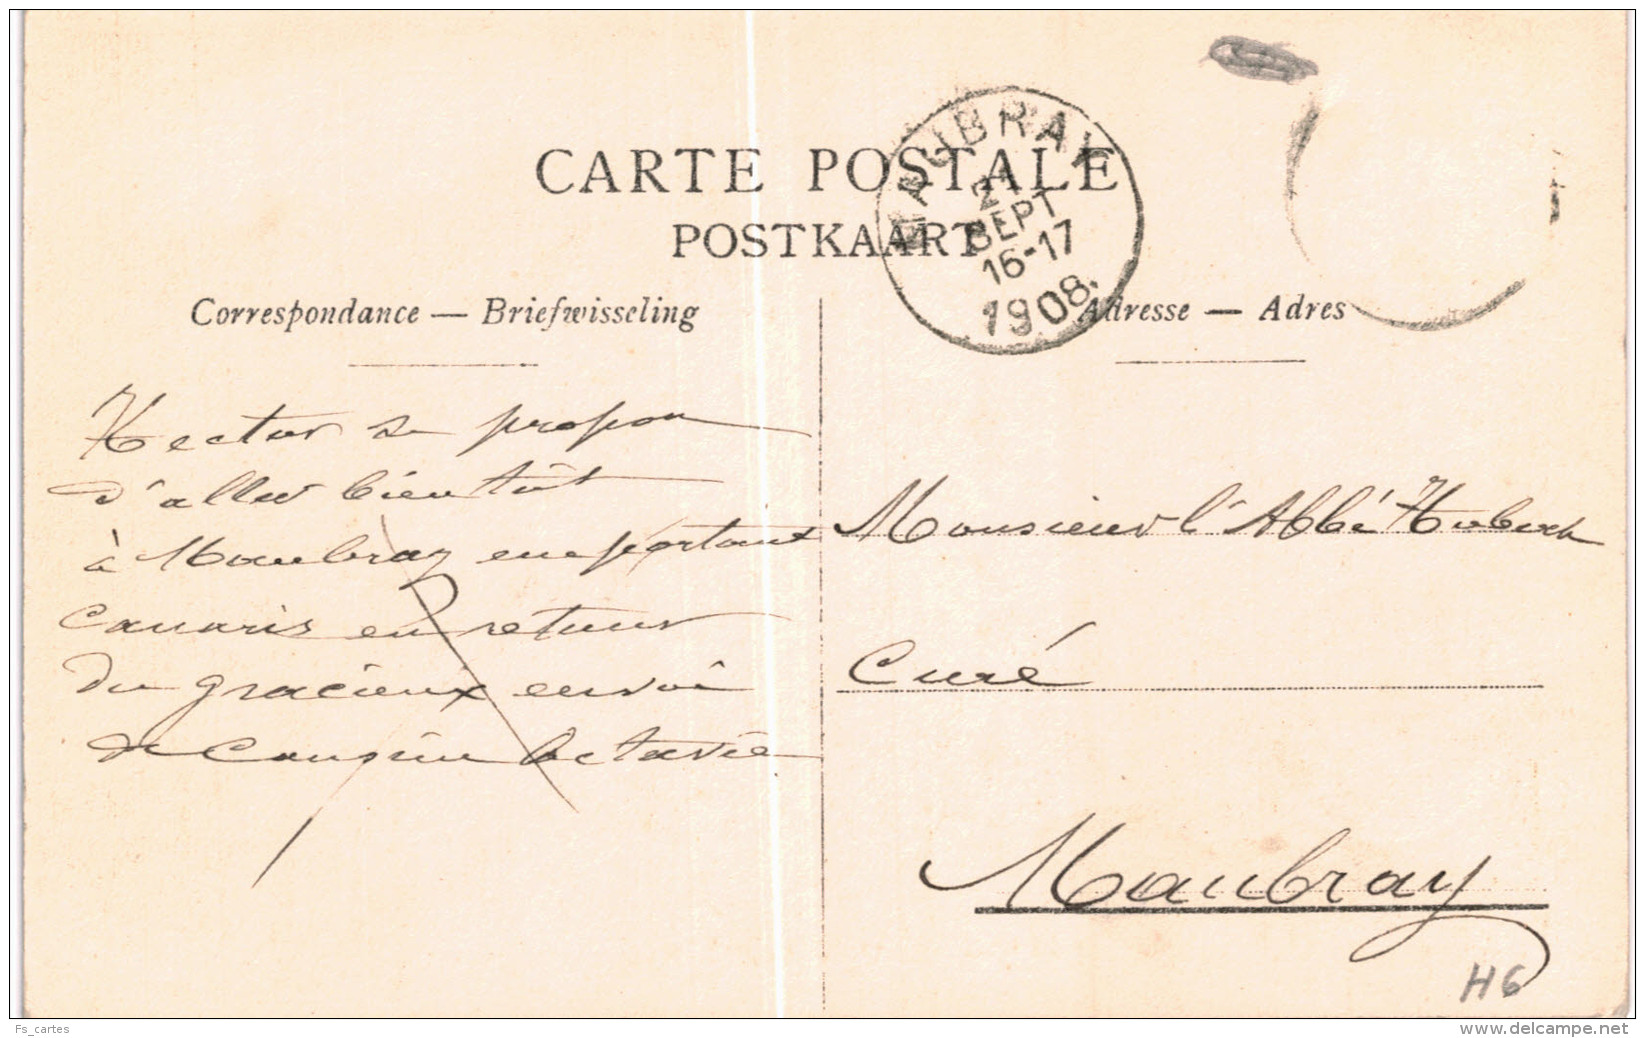 CARTE POSTALE
POSTKAART
MAUBRAY
21
SEPT
16-17
1908.
Correspondance — Briefwisseling
Adresse — Adres
Hector se propose
d'aller bientôt
à Maubray en portant
Canaris en retour
du gracieux envoi
de Cousine Octavie
Monsieur l'Abbé Hubert
Curé
Maubray
H6
Fs_cartes
www.delcampe.net